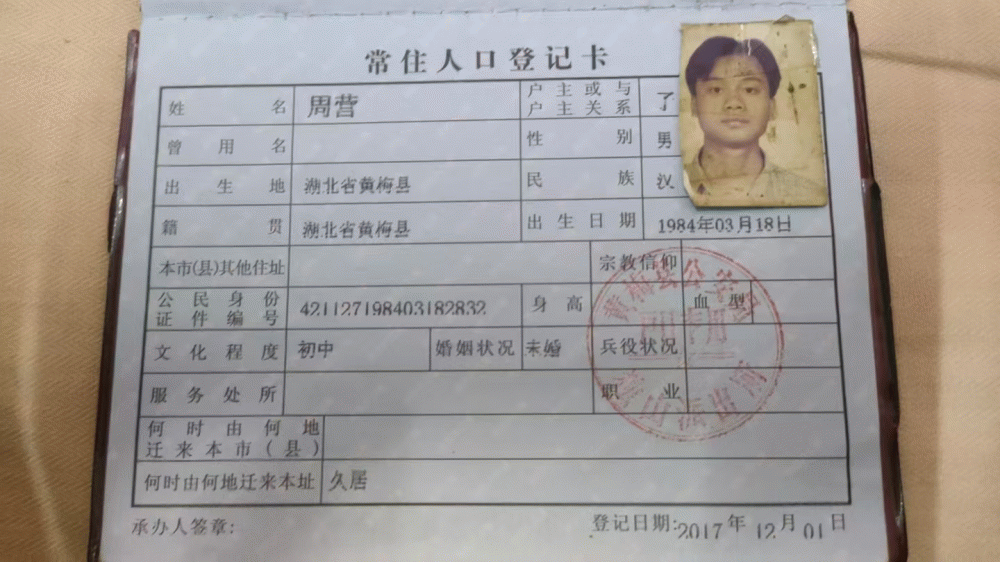 常住人口登记卡
姓名 周营 户主或与户主关系
曾用名 性别 男
出生地 湖北省黄梅县 民族 汉
籍贯 湖北省黄梅县 出生日期 1984年03月18日
本市(县)其他住址 宗教信仰
公民身份证件编号 421127198403182832 身高 血型
文化程度 初中 婚姻状况 未婚 兵役状况
服务处所 职业
何时由何地迁来本市(县)
何时由何地迁来本址 久居
承办人签章: 登记日期:2017年12月01日
黄梅县公安局